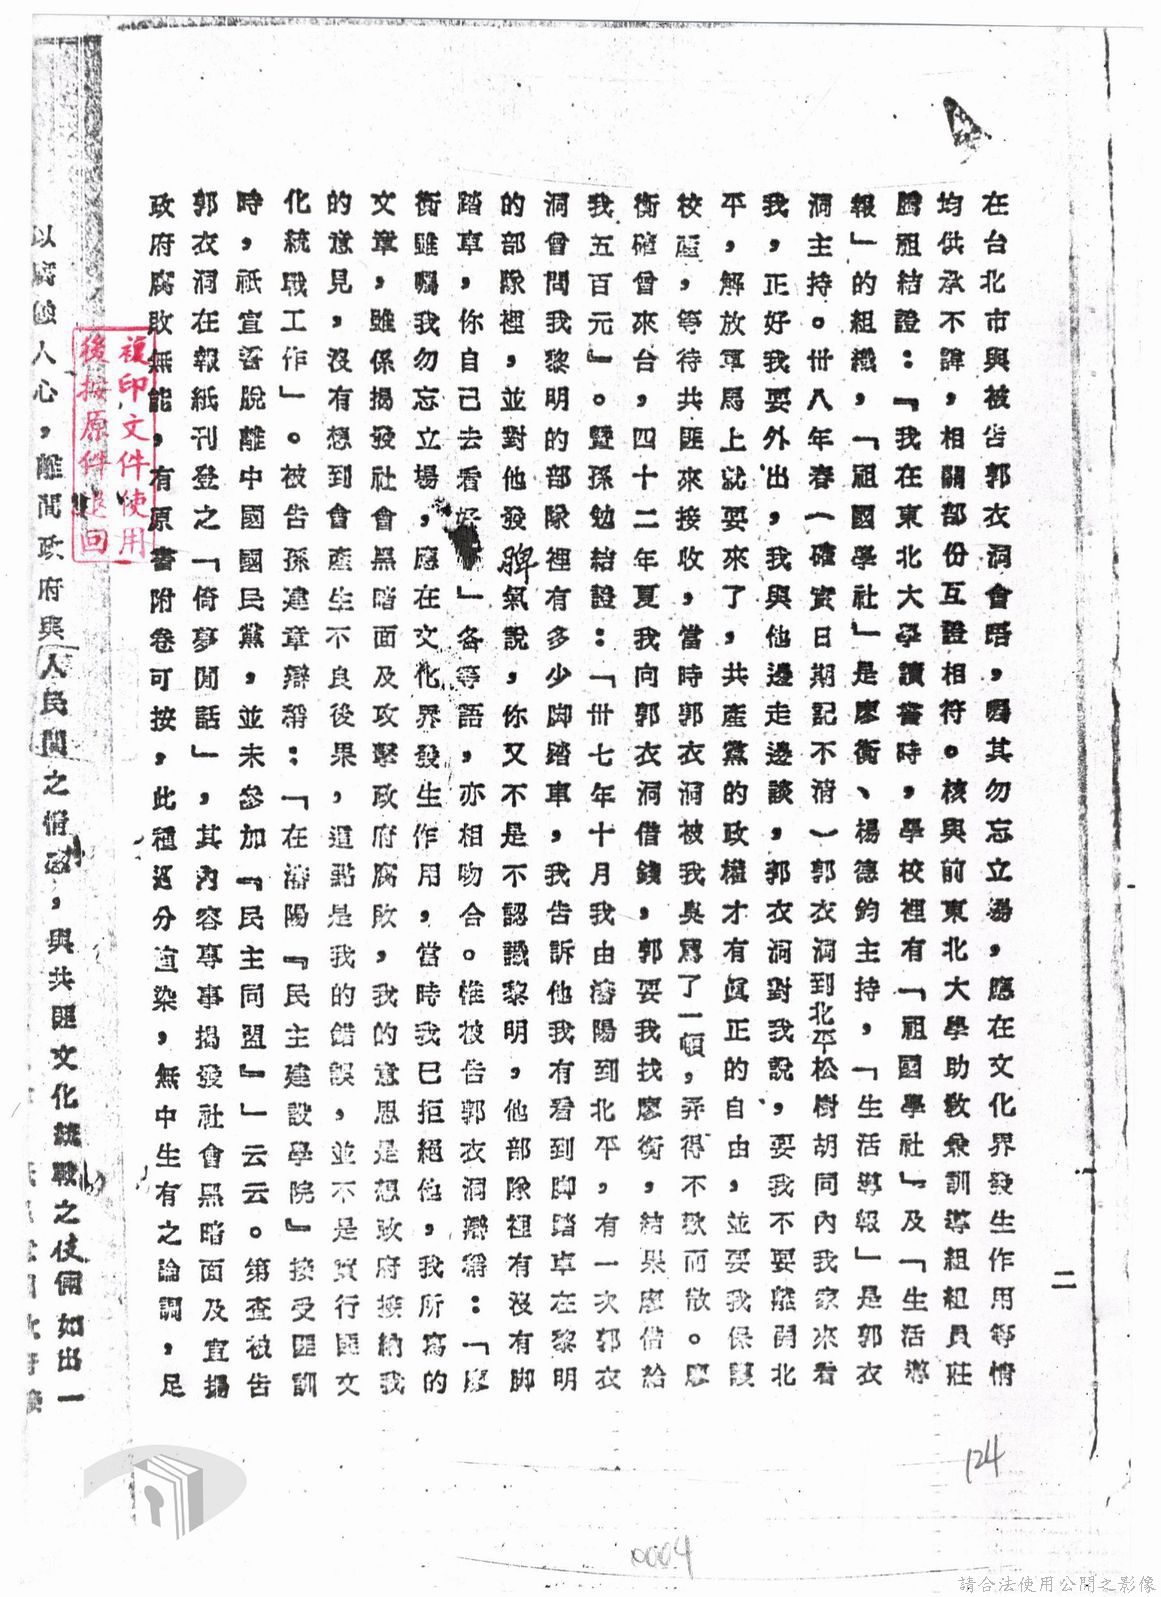 二
在台北市與被告郭衣洞會晤，囑其勿忘立場，應在文化界發生作用等情
均供承不諱，相關部份互證相符。核與前東北大學助教兼訓導組組員莊
鵬祖結證：『我在東北大學讀書時，學校裡有「祖國學社」及「生活導
報」的組織，「祖國學社」是廖衡、楊德鈞主持，「生活導報」是郭衣
洞主持。卅八年春一確實日期記不清）郭衣洞到北平松樹胡同內我家來看
我，正好我要外出，我與他邊走邊談，郭衣洞對我說，要我不要離開北
平，解放軍馬上就要來了，共產黨的政權才有眞正的自由，並要我保護
校產，等待共匪來接收，當時郭衣洞被我臭罵了一頓，弄得不歡而散。廖
衡確曾來台，四十二年夏我向郭衣洞借錢，郭要我找廖衡，結果廖借給
我五百元』。暨孫勉結證：「卅七年十月我由瀋陽到北平，有一次郭衣
洞曾問我黎明的部隊裡有多少脚踏車，我告訴他我有看到脚踏車在黎明
的部隊裡，並對他發脾氣說，你又不是不認識黎明，他部隊裡有沒有脚
踏車，你自己去看好」各等語，亦相吻合。惟被告郭衣洞辯稱：「廖
衡雖囑我勿忘立場，應在文化界發生作用，當時我已拒絕他，我所寫的
文章，雖係揭發社會黑暗面及攻擊政府腐敗，我的意思是想政府接納我
的意見，沒有想到會產生不良後果，這點是我的錯誤，並不是實行匪文
化統戰工作」。被告孫建章辯稱：「在瀋陽『民主建設學院』接受匪訓
時，祇宣誓脫離中國國民黨，並未參加『民主同盟』」云云。第查被告
郭衣洞在報紙刊登之「倚夢閒話」，其內容專事揭發社會黑暗面及宣揚
政府腐敗無能，有原書附卷可按，此種過分渲染，無中生有之論調，足
以腐蝕人心，離間政府與人民間之情感，與共匪文化統戰之伎倆如出一
複印文件使用
後按原件退回
124
0004
請合法使用公開之影像